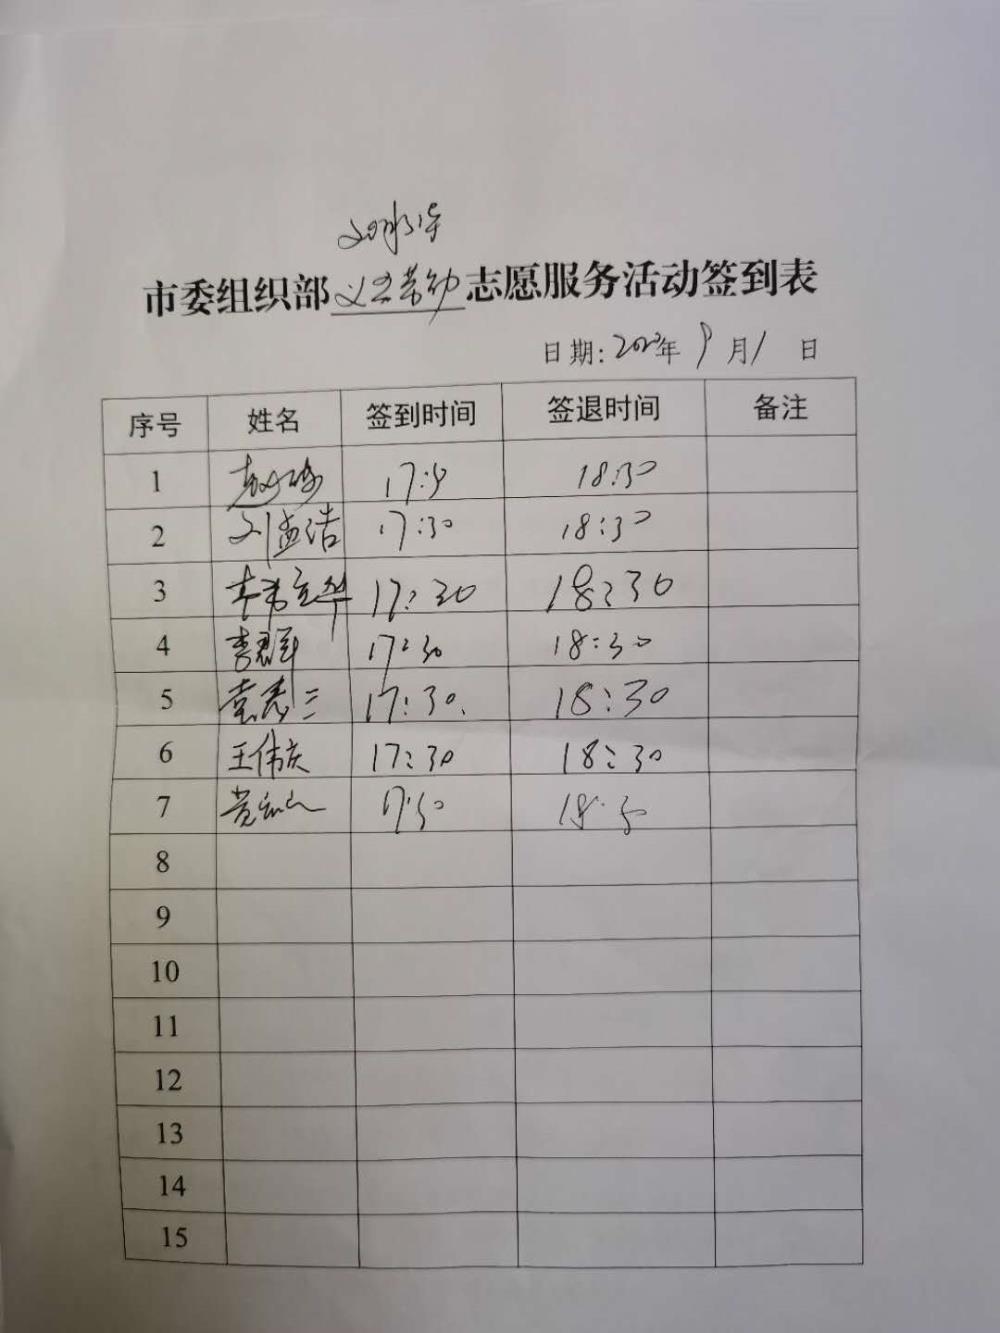 市委组织部义务劳动志愿服务活动签到表
日期: 2020年 9月1 日
序号 姓名 签到时间 签退时间 备注
1 18:30
2 刘孟浩 17:30 18:30
3 17:30 18:30
4 李君 17:30 18:30
5 袁 17:30 18:30
6 王伟庆 17:30 18:30
7 17:30 18:30
8
9
10
11
12
13
14
15